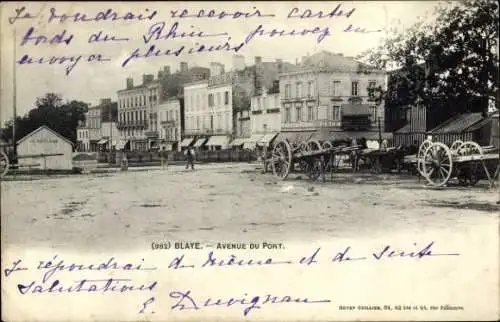 Je voudrais recevoir cartes
bords du Rhin, pouvez en
envoyer plusieurs
(982) BLAYE. — AVENUE DU PORT.
Je répondrai de même et de suite
Salutations
E. Duvignau
HENRY GUILLIER,